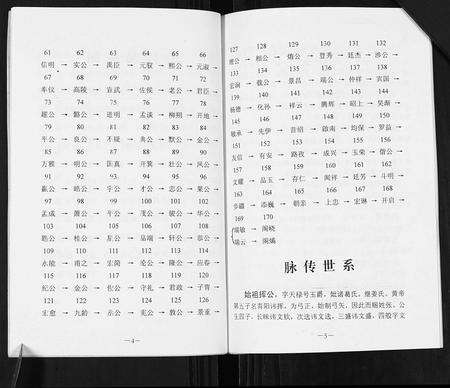 61 62 63 64 65 66
信明→ 实公→ 熙公→ 元淑→
67 68 69 70 71 72
奉仪→ 高陵→ 宣武→ 老公→ 君臣→
73 74 75 76 77 78
雄公→ 鄱公→ 道明→ 孟溪→ 柳朔→ 开地→
79 80 81 82 83 84
平公→ 良公→ 不疑→ 典公→ 默公→ 金公→
85 86 87 88 89 90
万雅→ 明公→ 国真→ 开冀→ 壮公→ 风公→
91 92 93 94 95 96
皓公→ 宇公→ 才公→ 忠公→ 果公→
97 98 99 100 101 102
孟成→ 萧公→ 平公→ 茂公→ 骏公→ 华公→
103 104 105 106 107 108
皓公→ 桂公→ 星公→ 轩公→ 恭公→
109 110 111 112 113 114
永陵→ 甫之→ 宏简→ 伦公→ 隆公→ 应春→
115 116 117 118 119 120
纪公→ 金公→ 佐公→ 守礼→ 君政→ 子胄→
121 122 123 124 125 126
生愈→ 九龄→ 岳公→ 宪公→ 敦公→ 景重→
—4—
127 128 129 130 131 132
相公→ 登秀→ 廷杰→ 涉公→
133 134 135 136 137 138
宏渊→ 载公→ 景昌→ 端公→ 仲祥→ 宾国→
139 140 141 142 143 144
杨德→ 化孙→ 祥云→ 腾辉→ 昭上→ 昊瀚→
145 146 147 148 149 150
敏承→ 先伊→ 首绍→ 啟南→ 均保→ 罗益→
151 152 153 154 155 156
友信→ 有安→ 路孜→ 成兴→ 玉荣→ 儒公→
157 158 159 160 161 162
文耀→ 品玉→ 存仁→ 闻祥→ 廷芳→ 斗明→
163 164 165 166 167 168
步疆→ 添巍→ 朝亲→ 上忠→ 宏琳→ 开启→
169 170
瑞敏→ 闽晓
瑞云→ 闽嫣
脉传世系
始祖挥公，字天禄号玉爵，妣诸葛氏，继姜氏，黄帝
第五子名青阳讳挥，为弓正，始制弓矢，因此而赐姓张，公
生四子，长昧讳文钦，次逸讳文选，三盛讳文盛，四般字文
—5—